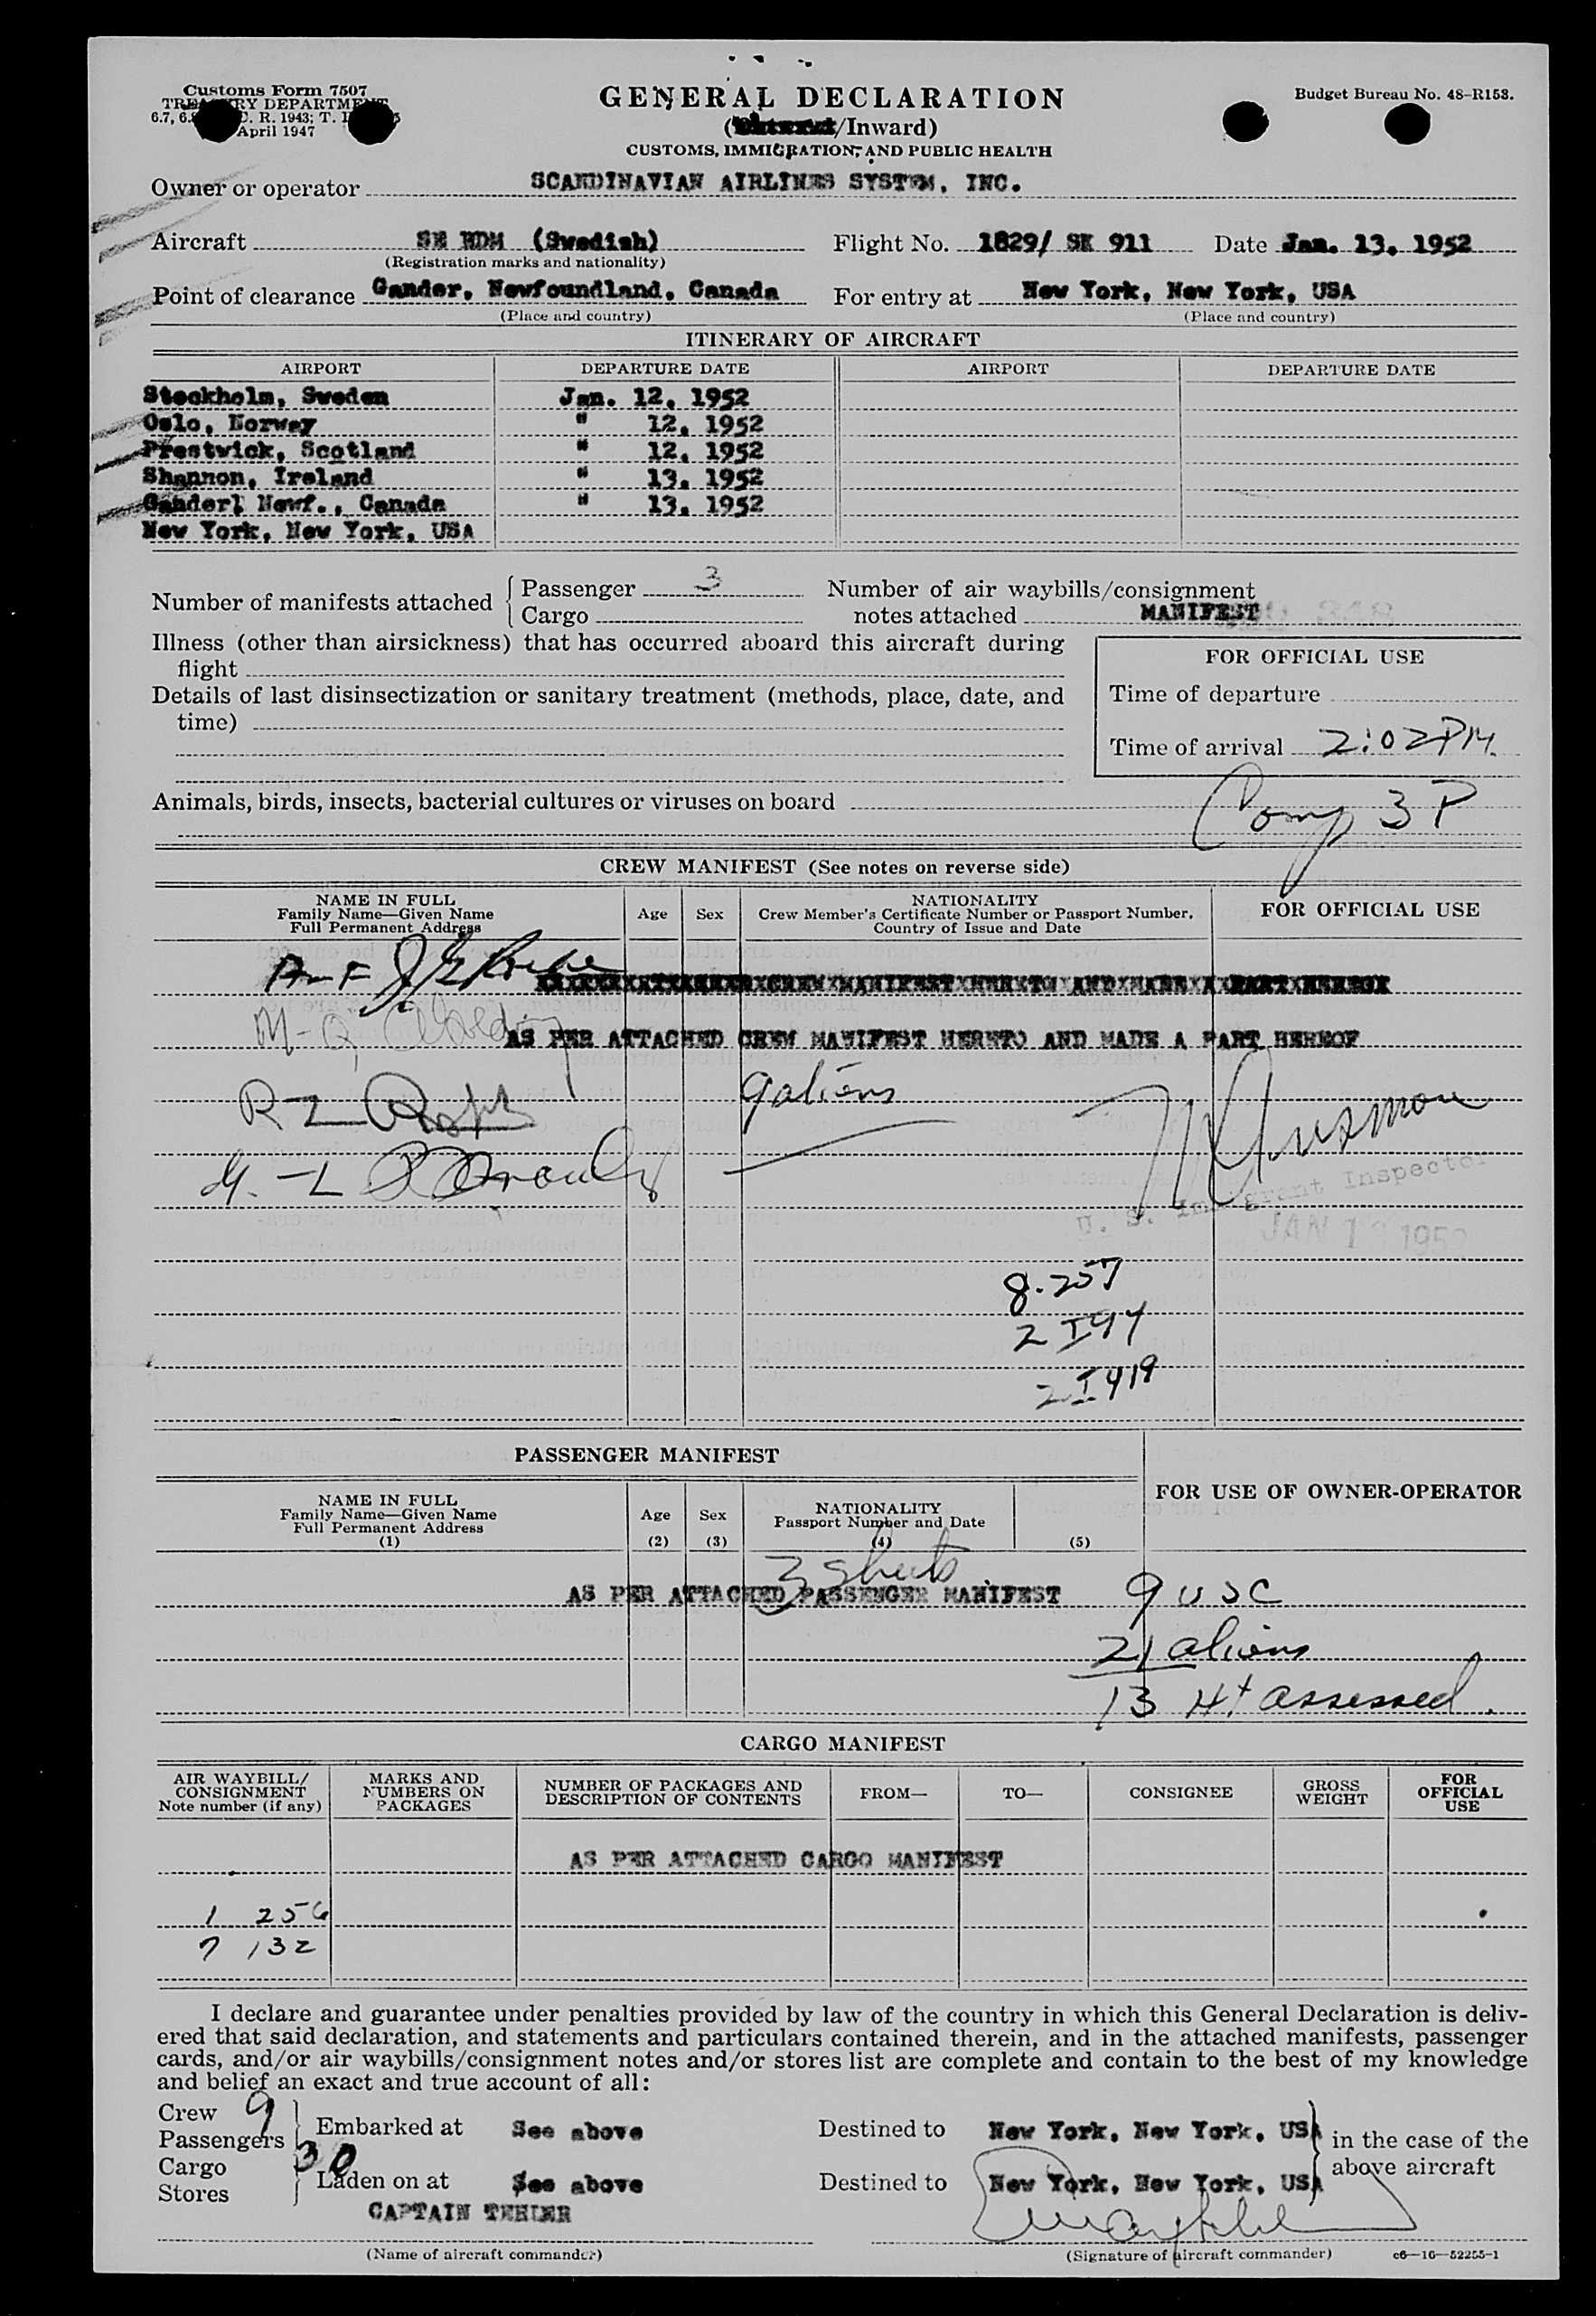 Customs Form 7507
TREASURY DEPARTMENT
C. R. 1943; T.
April 1947
GENERAL DECLARATION
/Inward)
CUSTOMS, IMMIGRATION, AND PUBLIC HEALTH
Budget Bureau No. 48-R153.
Owner or operator SCANDINAVIAN AIRLINES SYSTEM, INC.
Aircraft SE BDM (Swedish) Flight No. 1829/ SK 911 Date Jan. 13, 1952
(Registration marks and nationality)
Point of clearance Gander, Newfoundland, Canada For entry at New York, New York, USA
(Place and country) (Place and country)
ITINERARY OF AIRCRAFT
AIRPORT DEPARTURE DATE AIRPORT DEPARTURE DATE
Stockholm, Sweden Jan. 12, 1952
Oslo, Norway " 12, 1952
Prestwick, Scotland " 12, 1952
Shannon, Ireland " 13, 1952
Gander, Newf., Canada " 13, 1952
New York, New York, USA
Number of manifests attached { Passenger 3
Cargo
Number of air waybills/consignment
notes attached MANIFEST
Illness (other than airsickness) that has occurred aboard this aircraft during
flight
Details of last disinsectization or sanitary treatment (methods, place, date, and
time)
FOR OFFICIAL USE
Time of departure
Time of arrival 2:02PM.
Comp 3 P
Animals, birds, insects, bacterial cultures or viruses on board
CREW MANIFEST (See notes on reverse side)
NAME IN FULL
Family Name—Given Name
Full Permanent Address
Age Sex
NATIONALITY
Crew Member's Certificate Number or Passport Number,
Country of Issue and Date
FOR OFFICIAL USE
AS PER ATTACHED CREW MANIFEST HERETO AND MADE A PART HEREOF
9 aliens
U. S. Immigrant Inspector
JAN 1 1952
8-257
2 I 94
2 I 419
PASSENGER MANIFEST
FOR USE OF OWNER-OPERATOR
NAME IN FULL
Family Name—Given Name
Full Permanent Address
(1)
Age
(2)
Sex
(3)
NATIONALITY
Passport Number and Date
(4)
(5)
3 sheets
AS PER ATTACHED PASSENGER MANIFEST
9 USC
21 aliens
13 Ht assessed.
CARGO MANIFEST
AIR WAYBILL/
CONSIGNMENT
Note number (if any)
MARKS AND
NUMBERS ON
PACKAGES
NUMBER OF PACKAGES AND
DESCRIPTION OF CONTENTS
FROM—
TO—
CONSIGNEE
GROSS
WEIGHT
FOR
OFFICIAL
USE
AS PER ATTACHED CARGO MANIFEST
1 256
7 132
I declare and guarantee under penalties provided by law of the country in which this General Declaration is deliv-
ered that said declaration, and statements and particulars contained therein, and in the attached manifests, passenger
cards, and/or air waybills/consignment notes and/or stores list are complete and contain to the best of my knowledge
and belief an exact and true account of all:
Crew 9
Passengers 30
Embarked at See above Destined to New York, New York, USA
Cargo
Stores
Laden on at See above Destined to New York, New York, USA
in the case of the
above aircraft
CAPTAIN TEHLER
(Name of aircraft commander) (Signature of aircraft commander) c6—16—52255-1